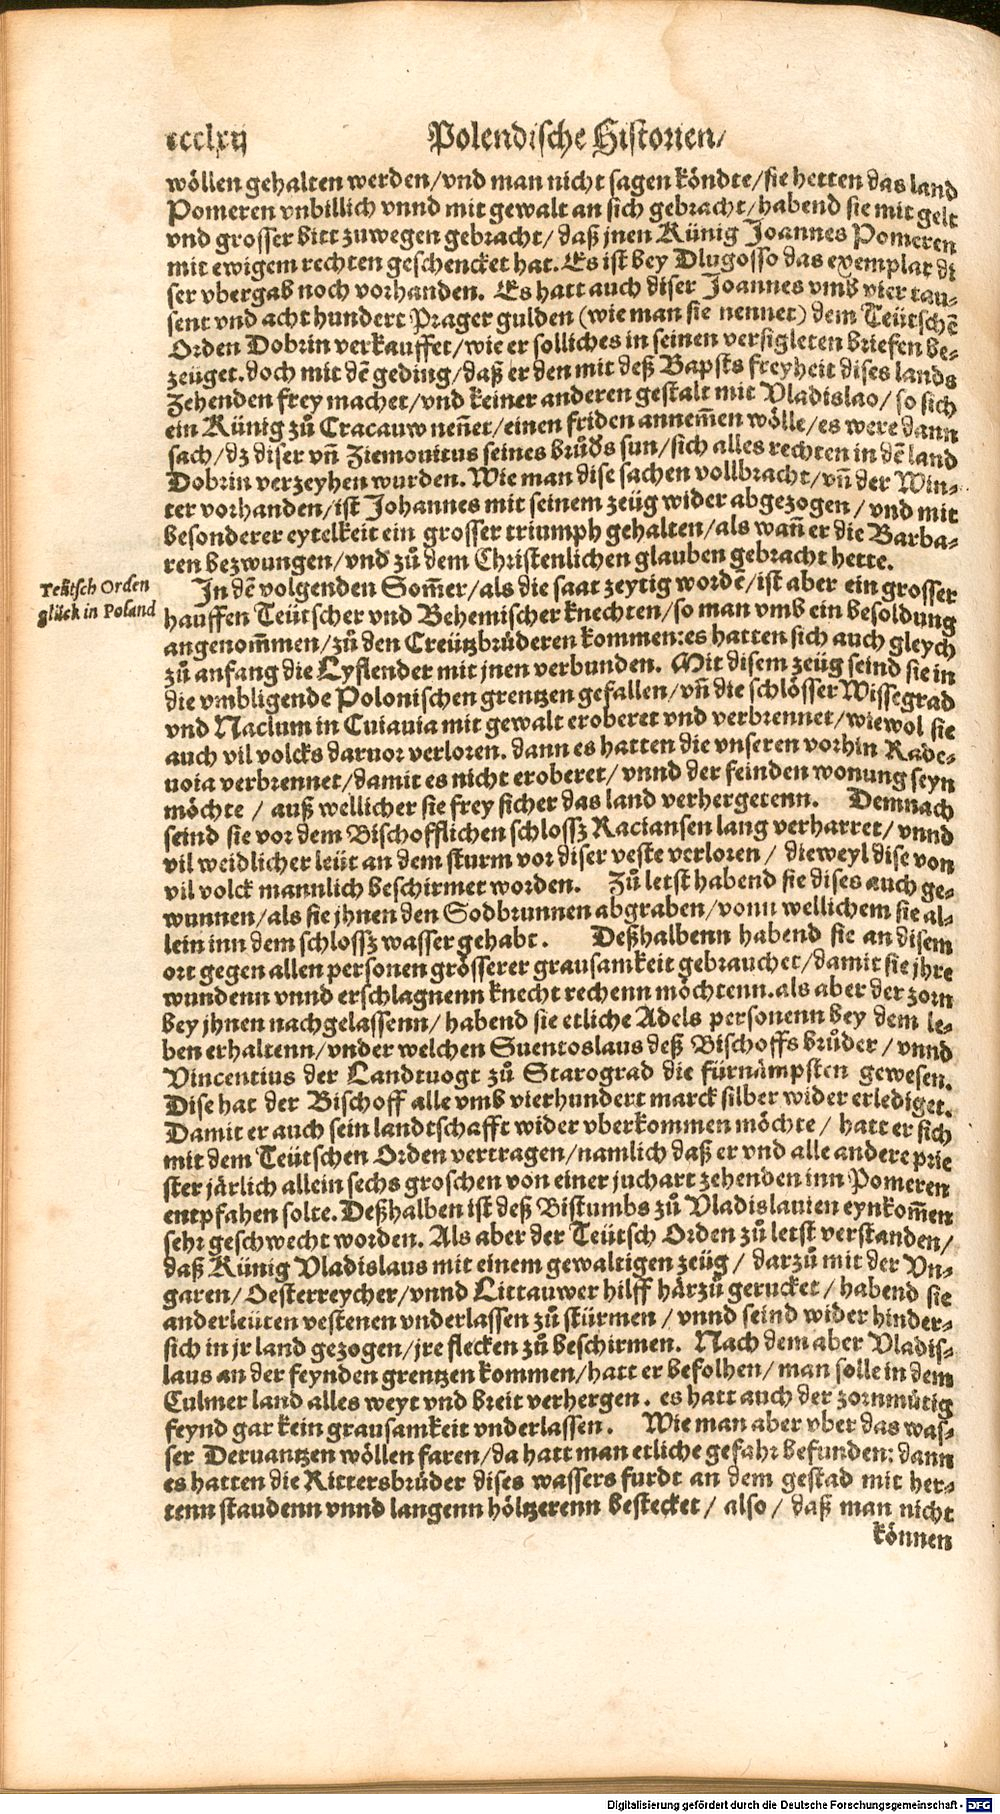 ccclxij Polendische Historien/
wöllen gehalten werden/vnd man nicht sagen köndte/sie hetten das land
Pomeren vnbillich vnnd mit gewalt an sich gebracht/habend sie mit gelt
vnd grosser bitt zuwegen gebracht/daß jnen Künig Joannes Pomeren
mit ewigem rechten geschencket hat. Es ist bey Dlugosso das exemplar di
ser vbergab noch vorhanden. Es hatt auch diser Joannes vmb vier tau-
sent vnd acht hundert Prager gulden (wie man sie nennet) dem Teütschẽ
Orden Dobrin verkauffet/wie er solliches in seinen versigleten briefen be-
zeüget. doch mit dẽ geding/daß er den mit deß Bapsts freyheit dises lands
Zehenden frey machet/vnd keiner anderen gestalt mit Vladislao/so sich
ein Künig zů Cracauw neñet/einen friden annem̃en wölle/es were dann
sach/dz diser vñ Ziemouitus seines brůds sun/sich alles rechten in dẽ land
Dobrin verzeyhen wurden. Wie man dise sachen vollbracht/vñ der Win-
ter vorhanden/ist Johannes mit seinem zeüg wider abgezogen/vnd mit
besonderer eytelkeit ein grosser triumph gehalten/als wañ er die Barba-
ren bezwungen/vnd zů dem Christenlichen glauben gebracht hette.
Teütsch Orden
glück in Poland
In dẽ volgenden Som̃er/als die saat zeytig wordẽ/ist aber ein grosser
hauffen Teütscher vnd Behemischer knechten/so man vmb ein besoldung
angenom̃men/zů den Creützbrüderen kommen: es hatten sich auch gleych
zů anfang die Lyflender mit jnen verbunden. Mit disem zeüg seind sie in
die vmbligende Polonischen grentzen gefallen/vñ die schlösser Wissegrad
vnd Naclum in Cuiauia mit gewalt eroberet vnd verbrennet/wiewol sie
auch vil volcks daruor verloren. dann es hatten die vnseren vorhin Rade-
uoia verbrennet/damit es nicht eroberet/vnnd der feinden wonung seyn
möchte / auß wellicher sie frey sicher das land verhergetenn. Demnach
seind sie vor dem Bischofflichen schlossz Raciansen lang verharret/vnnd
vil weidlicher leüt an dem sturm vor diser veste verloren/ dieweyl dise von
vil volck mannlich beschirmet worden. Zů letst habend sie dises auch ge-
wunnen/als sie jhnen den Sodbrunnen abgraben/vonn wellichem sie al-
lein inn dem schlossz wasser gehabt. Deßhalbenn habend sie an disem
ort gegen allen personen grösserer grausamkeit gebrauchet/damit sie jhre
wundenn vnnd erschlagnenn knecht rechenn möchtenn. als aber der zorn
bey jhnen nachgelassenn/ habend sie etliche Adels personenn bey dem le-
ben erhaltenn/vnder welchen Suentoslaus deß Bischoffs brůder / vnnd
Vincentius der Landtuogt zů Starograd die fürnämpsten gewesen.
Dise hat der Bischoff alle vmb vierhundert marck silber wider erlediget.
Damit er auch sein landtschafft wider vberkommen möchte/ hatt er sich
mit dem Teütschen Orden vertragen/namlich daß er vnd alle andere prie
ster järlich allein sechs groschen von einer juchart zehenden inn Pomeren
entpfahen solte. Deßhalben ist deß Bistumbs zů Vladislauien eynkom̃en
sehr geschwecht worden. Als aber der Teütsch Orden zů letst verstanden/
daß Künig Vladislaus mit einem gewaltigen zeüg / darzů mit der Vn-
garen/Oesterreycher/vnnd Littauwer hilff härzů gerucket/ habend sie
anderleüten vestenen vnderlassen zů stürmen / vnnd seind wider hinder-
sich in jr land gezogen/jre flecken zů beschirmen. Nach dem aber Vladis-
laus an der feynden grentzen kommen/hatt er befolhen/man solle in dem
Culmer land alles weyt vnd breit verhergen. es hatt auch der zornmütig
feynd gar kein grausamkeit vnderlassen. Wie man aber vber das was-
ser Deruantzen wöllen faren/da hatt man etliche gefahr befunden: dann
es hatten die Rittersbrüder dises wassers furdt an dem gestad mit her-
tenn staudenn vnnd langenn höltzerenn bestecket / also / daß man nicht
können
Digitalisierung gefördert durch die Deutsche Forschungsgemeinschaft - DFG